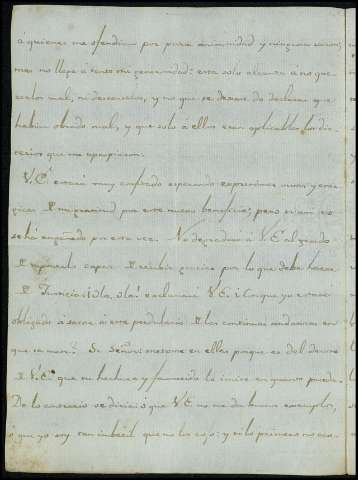 á quienes me ofendian por pura animosidad y ninguna razon;
mas no llega á tanto mi generosidad: esta solo alcanza á no que
rerlos mal, ni desearselo, y no que se dexase de declarar que
habian obrado mal, y que solo á ellos eran aplicables los dic
terios que me apropiaron.
V.E. estará muy confiado esperando expresiones vivas y ener
gicas de mi gratitud por este nuevo beneficio; pero
se há engañado por esta vez. No degradaré á V.E. al grado
de capaz de recibir gracias por lo que debe hacer
de Justicia: ¡Ola, ola! exclamará V.E. ¿Con que yo estaré
obligado á sacar á este de las continuas en
que se mete? Si Señor: meterme en ellas porque es del
de V.E. que su hechura y favorecido le imite en quanto pueda.
De lo contrario se diria ó que V.E. no me da buenos exemplos,
ó que yo soy tan imbecil que no los cojo; y ni lo primero